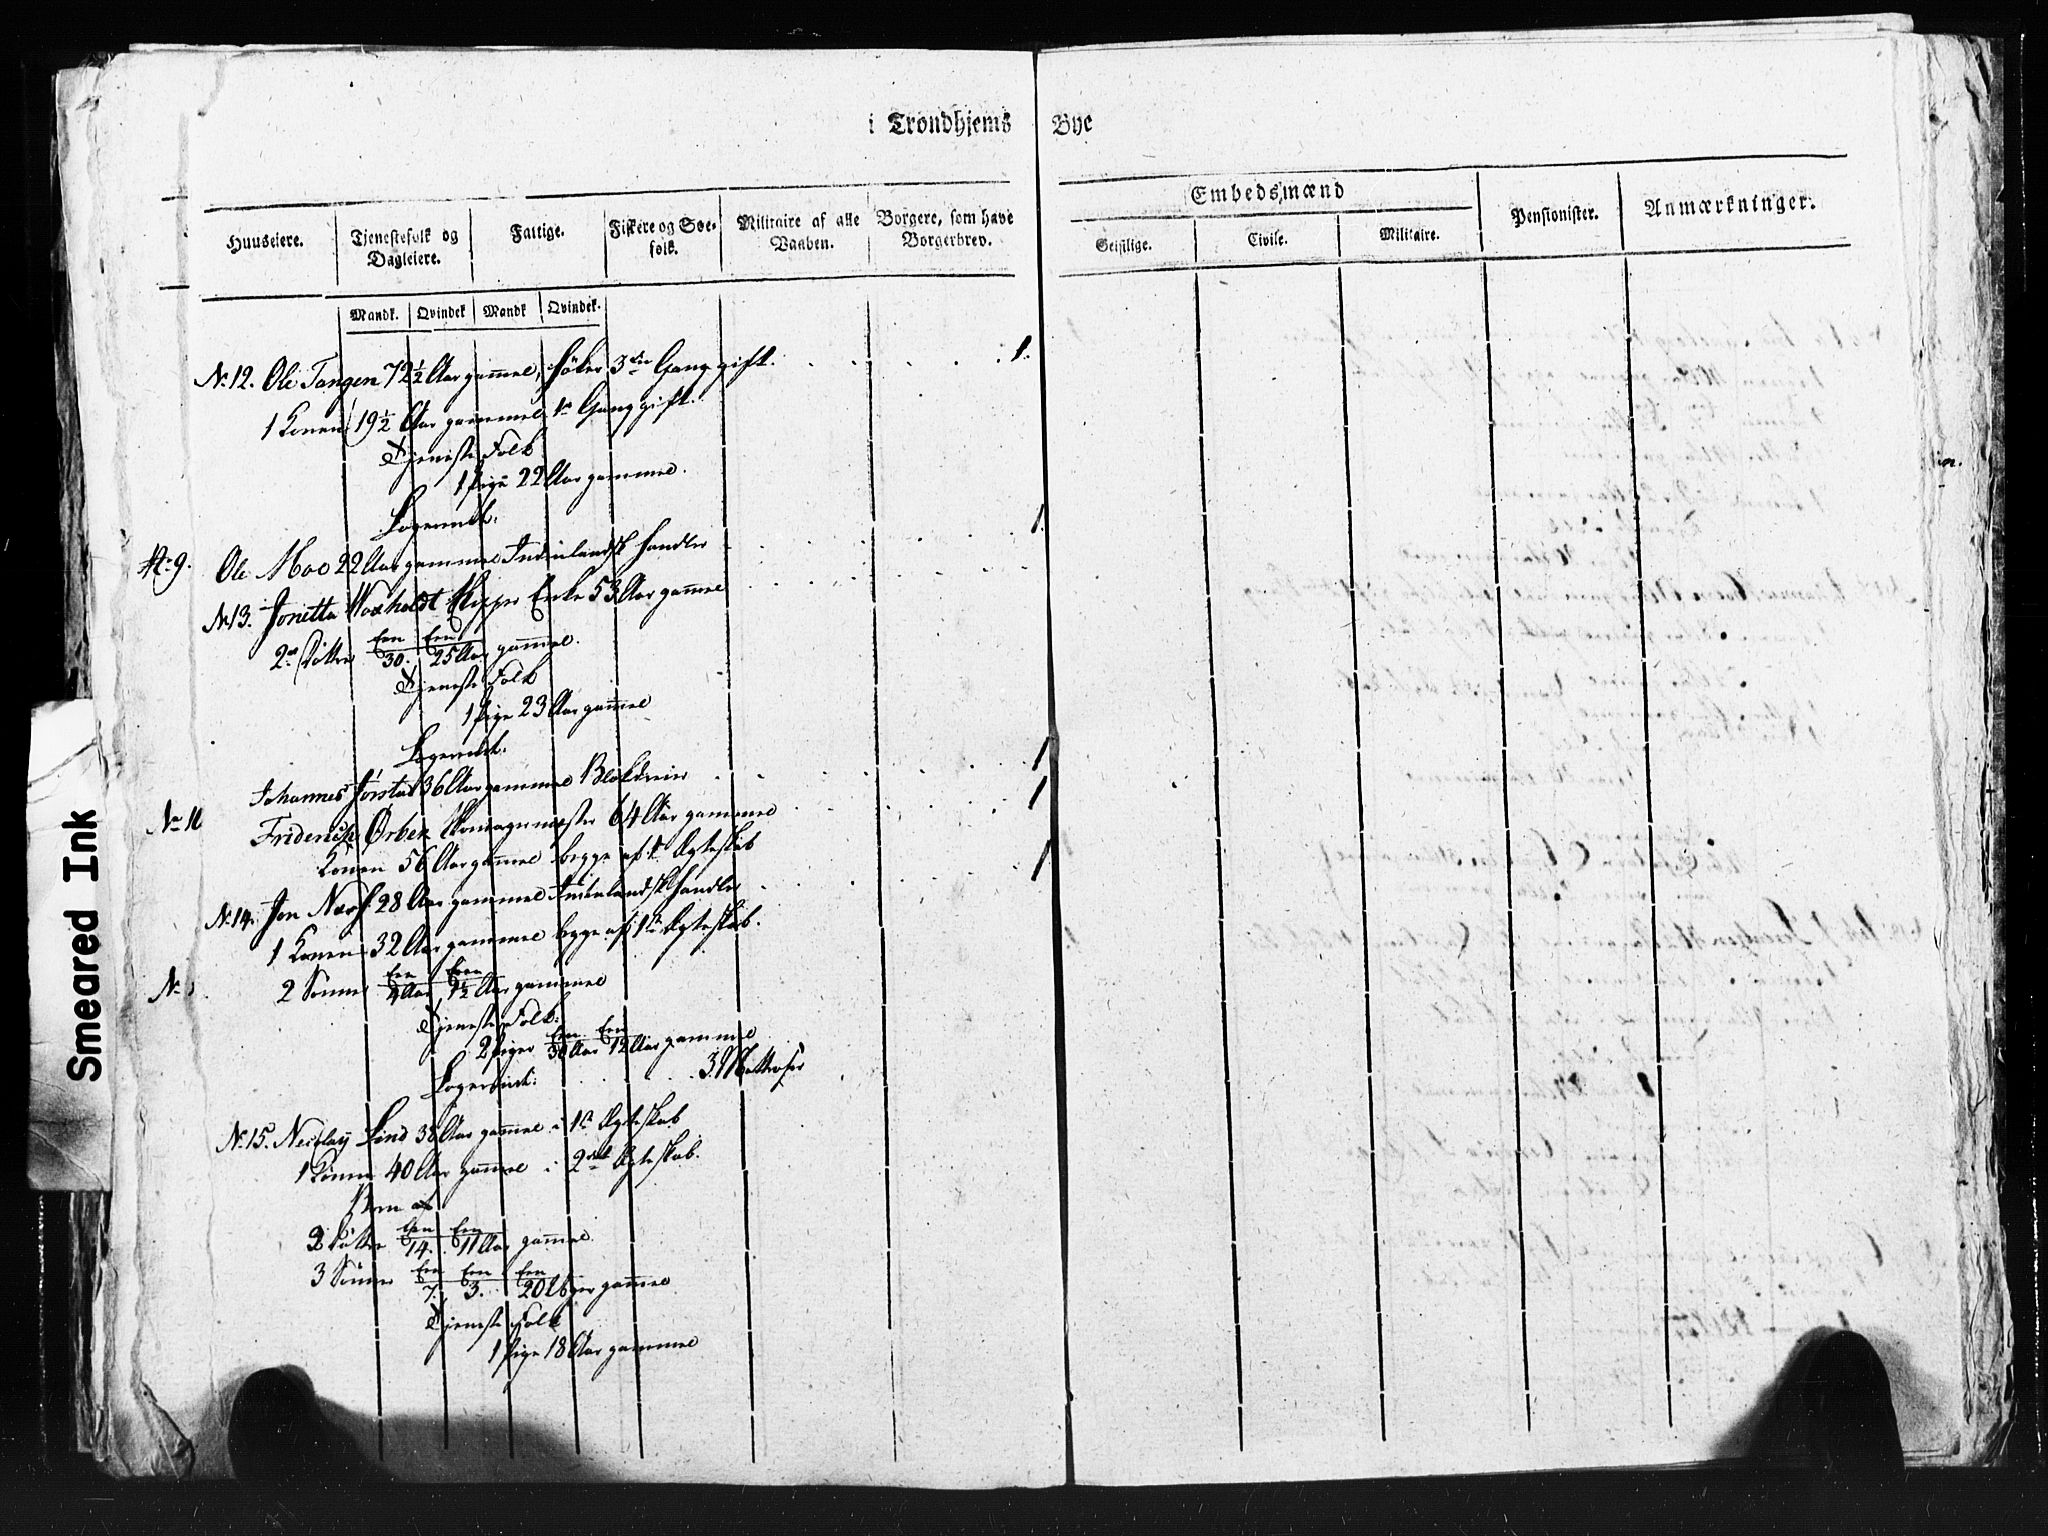 i Trondhjems Bye
Huuseiere. Tjenestefolk og Dagleiere. Fattige. Fiskere og Søefolk. Militaire af alle Vaaben. Borgere, som have Borgerbrev. Embedsmænd Pensionister. Anmærkninger.
Geistlige. Civile. Militaire.
Mandk. Qvindek Mandk Qvindek.
No 12. Ole Tangen 72½ Aar gammel, Høker 3die Gang gift. 1.
1 Konen 19½ Aar gammel 1te Gang gift.
Tjeneste Folk
1 Pige 22 Aar gammel.
Logerende.
No 9. Ole Moe 22 Aar gammel Indenlandsk Handler 1.
No 13. Jonetta Woxholdt Skipper Enke 53 Aar gammel
2de Døttre Een 30. Een 25 Aar gammel.
Tjeneste Folk
1 Pige 23 Aar gammel
Logerende.
Johannes Jørstad 36 Aar gammel Blokdreier 1
Friderich Ørbek Skomagermester 64 Aar gammel 1
Konen 56 Aar gammel begge af 1te Ægteskab
No 14. Jon Næss 28 Aar gammel Indenlandsk Handler 1
1 Konen 32 Aar gammel begge af 1te Ægteskab.
2 Sønner Een 4 Aar Een 1½ Aar gammel
Tjeneste Folk:
2 Piger Een 30 Aar Een 12 Aar gammel
Logerende: 3. Mattroser
No 15. Nicolay Lind 38 Aar gammel i 1te Ægteskab
1 Konen 40 Aar gammel i 2det Ægteskab.
Børn af
2 Døttre Een 14. Een 11 Aar gammel.
3 Sønner Een 7. Een 3. Een 20 Uger gammel
Tjeneste Folk
1 Pige 18 Aar gammel
Smeared Ink